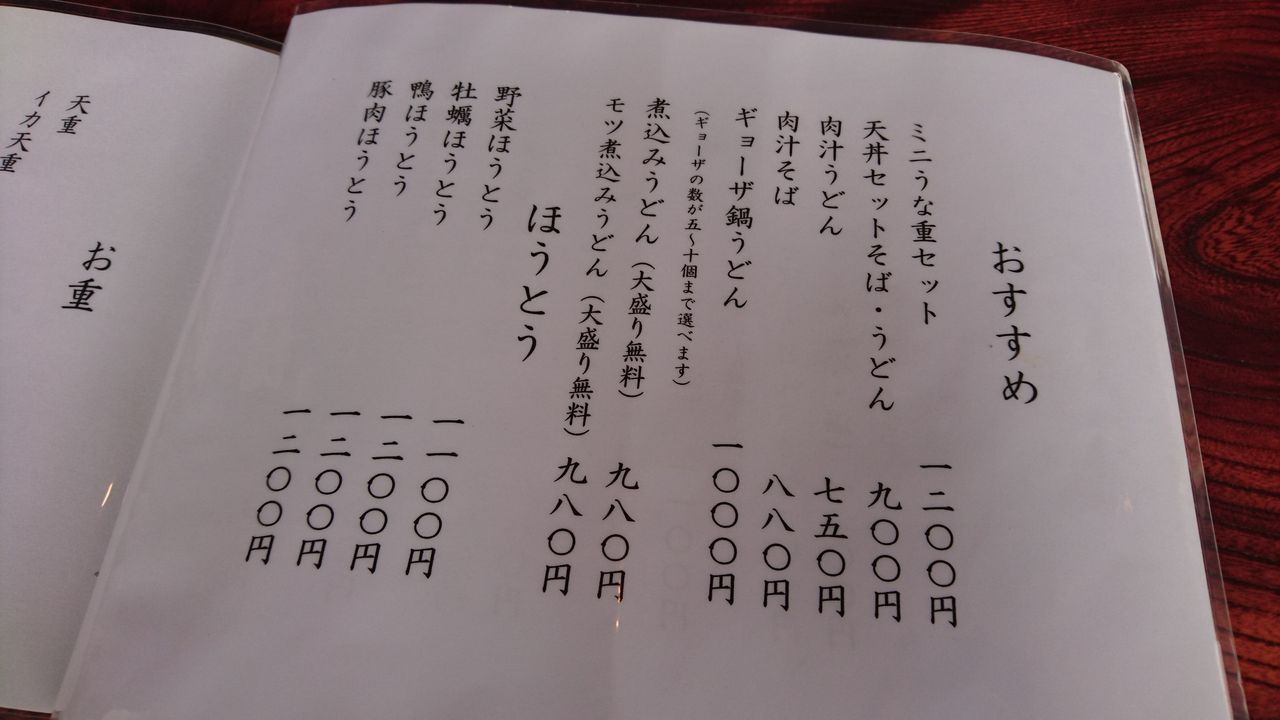 おすすめ
ミニうな重セット 一二〇〇円
天丼セットそば・うどん 九〇〇円
肉汁うどん 七五〇円
肉汁そば 八八〇円
ギョーザ鍋うどん 一〇〇〇円
（ギョーザの数が五〜十個まで選べます）
煮込みうどん（大盛り無料） 九八〇円
モツ煮込みうどん（大盛り無料） 九八〇円
ほうとう
野菜ほうとう 一一〇〇円
牡蠣ほうとう 一二〇〇円
鴨ほうとう 一二〇〇円
豚肉ほうとう 一二〇〇円
お重
天重
イカ天重